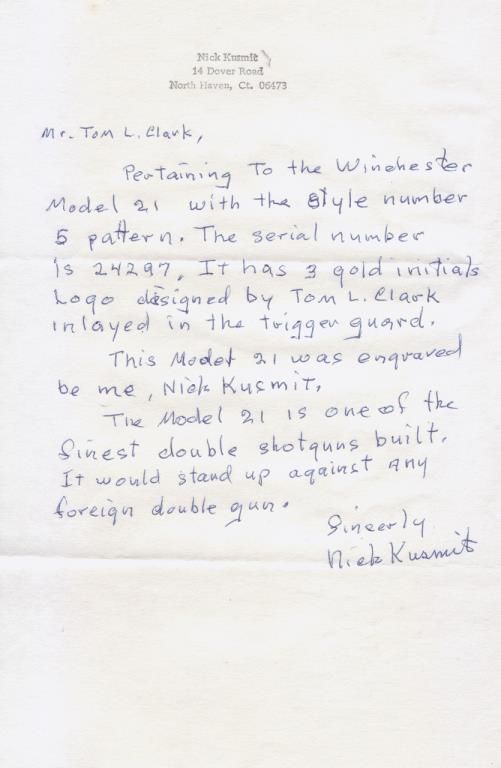 Nick Kusmit
14 Dover Road
North Haven, Ct. 06473
Mr. Tom L. Clark,
Pertaining To the Winchester
Model 21 with the style number
5 pattern. The serial number
is 24297, It has 3 gold initials
Logo designed by Tom L. Clark
inlayed in the trigger guard.
This Model 21 was engraved
be me, Nick Kusmit,
The Model 21 is one of the
finest double shotguns built.
It would stand up against Any
foreign double gun.
Sincerly
Nick Kusmit